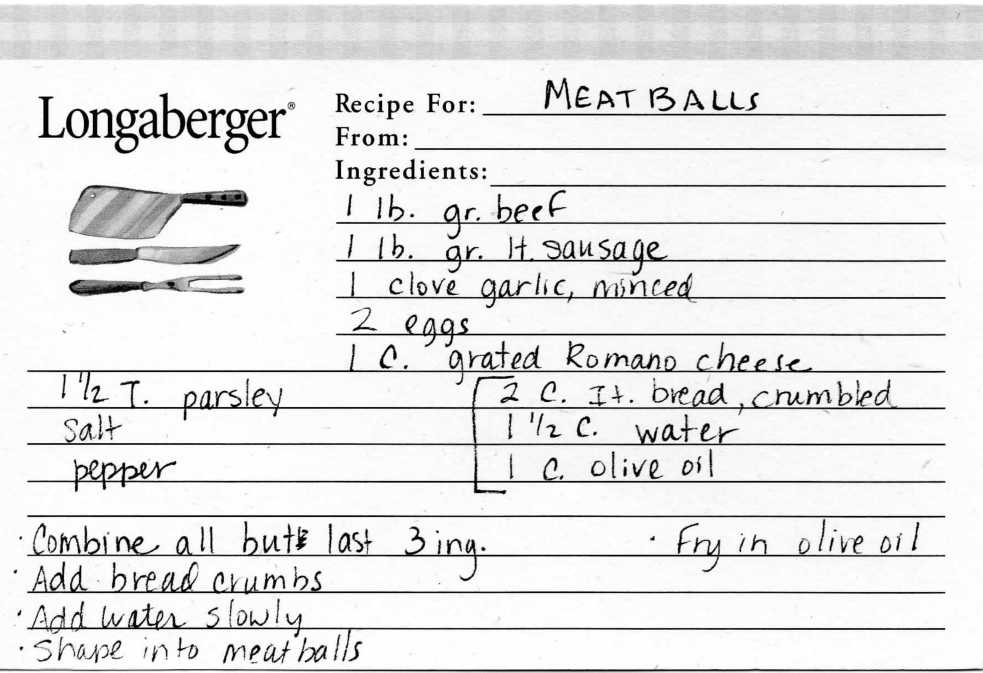 Longaberger®
Recipe For: MEATBALLS
From:
Ingredients:
1 lb. gr. beef
1 lb. gr. It. sausage
1 clove garlic, minced
2 eggs
1 C. grated Romano cheese
1 1/2 T. parsley
salt
pepper
2 C. It. bread, crumbled
1 1/2 C. water
1 C. olive oil
· Combine all but last 3 ing.
· Add bread crumbs
· Add water slowly
· Shape into meatballs
· Fry in olive oil